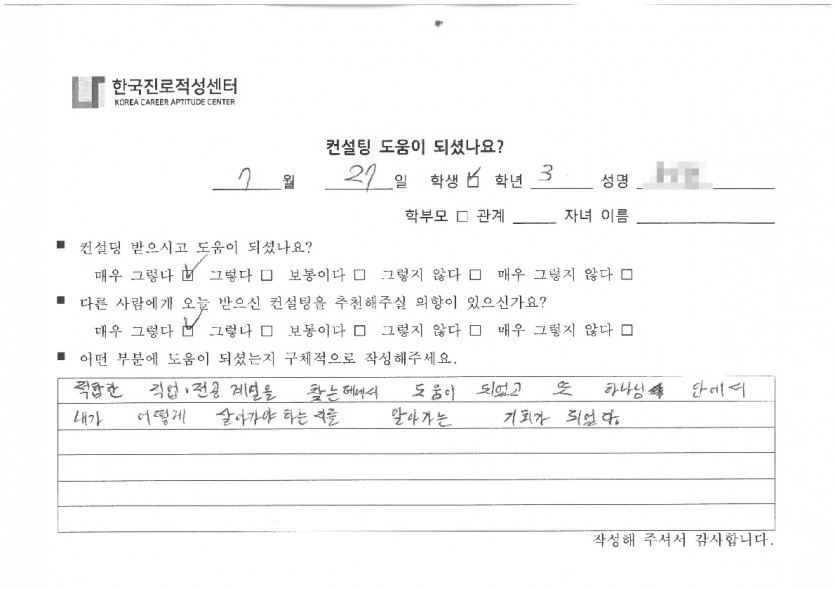 한국진로적성센터
KOREA CAREER APTITUDE CENTER
컨설팅 도움이 되셨나요?
7 월 27 일 학생 ☑ 학년 3 성명
학부모 □ 관계 자녀 이름
■ 컨설팅 받으시고 도움이 되셨나요?
매우 그렇다 ☑ 그렇다 □ 보통이다 □ 그렇지 않다 □ 매우 그렇지 않다 □
■ 다른 사람에게 오늘 받으신 컨설팅을 추천해주실 의향이 있으신가요?
매우 그렇다 ☑ 그렇다 □ 보통이다 □ 그렇지 않다 □ 매우 그렇지 않다 □
■ 어떤 부분에 도움이 되셨는지 구체적으로 작성해주세요.
적합한 직업, 전공 계열을 찾는데에서 도움이 되었고 또 하나님 안에서
내가 어떻게 살아가야 하는지를 알아가는 기회가 되었다.
작성해 주셔서 감사합니다.